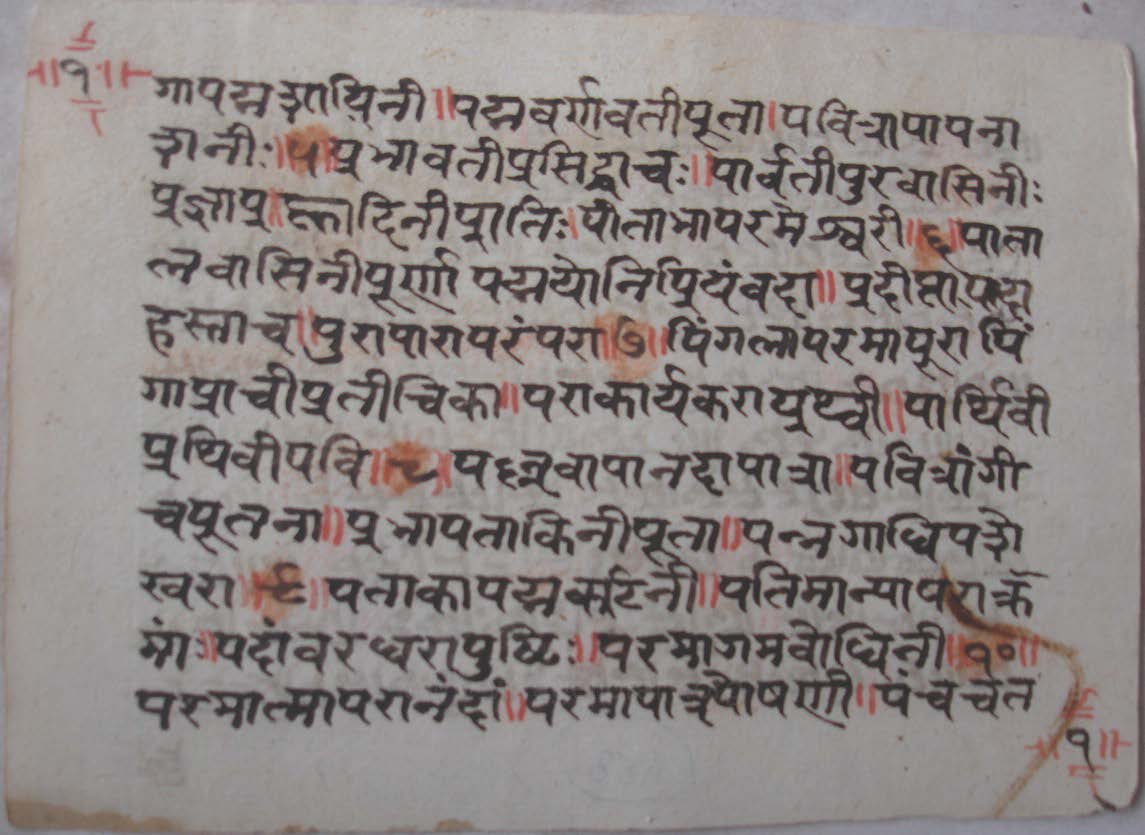 ॥१॥
गापद्मशायिनी॥पद्मवर्णावतीपूता।पवित्रापापना
शनीः॥५॥प्रभावतीप्रसिद्धाचः॥पार्वतीपुरवासिनीः
प्रज्ञाप्र॥ह्लादिनीप्रातिः।पीताभापरमेश्वरी॥६॥पाता
लवासिनीपूर्णा पद्मयोनिप्रियंवदा॥प्रदीप्ता
हस्ताच॥पुरापारापरंपरा॥७॥पिंगलापरमापूरा पिं
गाप्राचीप्रतीचिका॥पराकार्यकरापृथ्वी॥पार्थिवी
प्रथिवीपवि॥८॥पानदापात्रा॥पवित्रांगी
चपूतना॥प्रभापताकिनीपूता॥पन्नगाधिपशे
खरा॥९॥पताकापद्मकटिनी॥पतिमान्यापराक्र
मांः॥पदांवरधरापुष्टिः॥परमागमबोधिनी॥१०॥
परमात्मापरानंदां॥परमापात्रपोषणी॥पंचचेत
॥१॥